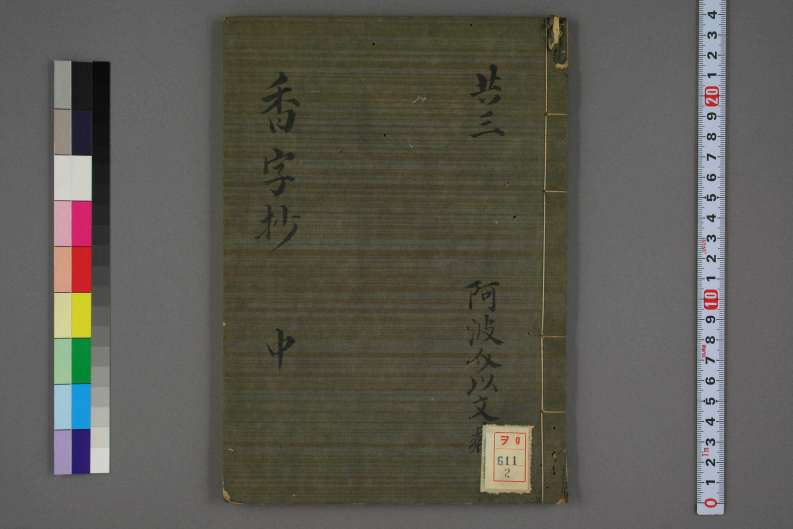 共三
阿波介以文
香字抄
中
ヲ 9
611
2
4 3 2 1 20 9 8 7 6 5 4 3 2 1 10 9 8 7 6 5 4 3 2 1 0